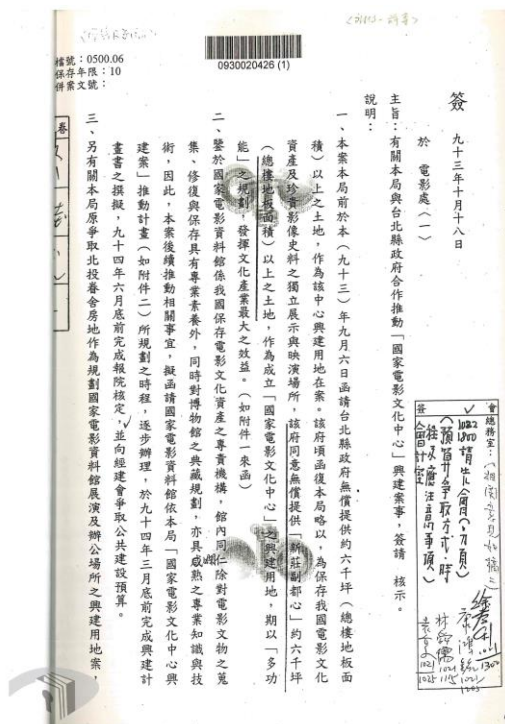 檔號：0500.06
保存年限：10
併案文號：
0930020426 (1)
簽
九十三年十月十八日
於 電影處（一）
主旨：有關本局與台北縣政府合作推動「國家電影文化中心」興建案事，簽請 核示。
說明：
一、本案本局前於本（九十三）年九月六日函請台北縣政府無償提供約六千坪（總樓地板面
積）以上之土地，作為該中心興建用地在案。該府頃函復本局略以，為保存我國電影文化
資產及珍貴影像史料之獨立展示與映演場所，該府同意無償提供「新莊副都心」約六千坪
（總樓地板面積）以上之土地，作為成立「國家電影文化中心」之興建用地，期以「多功
能」之規劃，發揮文化產業最大之效益。（如附件一來函）
二、鑒於國家電影資料館係我國保存電影文化資產之專責機構，館內同仁除對電影文物之蒐
集、修復與保存具有專業素養外，同時對博物館之典藏規劃，亦具成熟之專業知識與技
術，因此，本案後續推動相關事宜，擬函請國家電影資料館依本局「國家電影文化中心興
建案」推動計畫（如附件二）所規劃之時程，逐步辦理，於九十四年三月底前完成興建計
畫書之撰擬，九十四年六月底前完成報院核定，並向經建會爭取公共建設預算。
三、另有關本局原爭取北投眷舍房地作為規劃國家電影資料館展演及辦公場所之興建用地案，
會
總務室：
簽
會計室